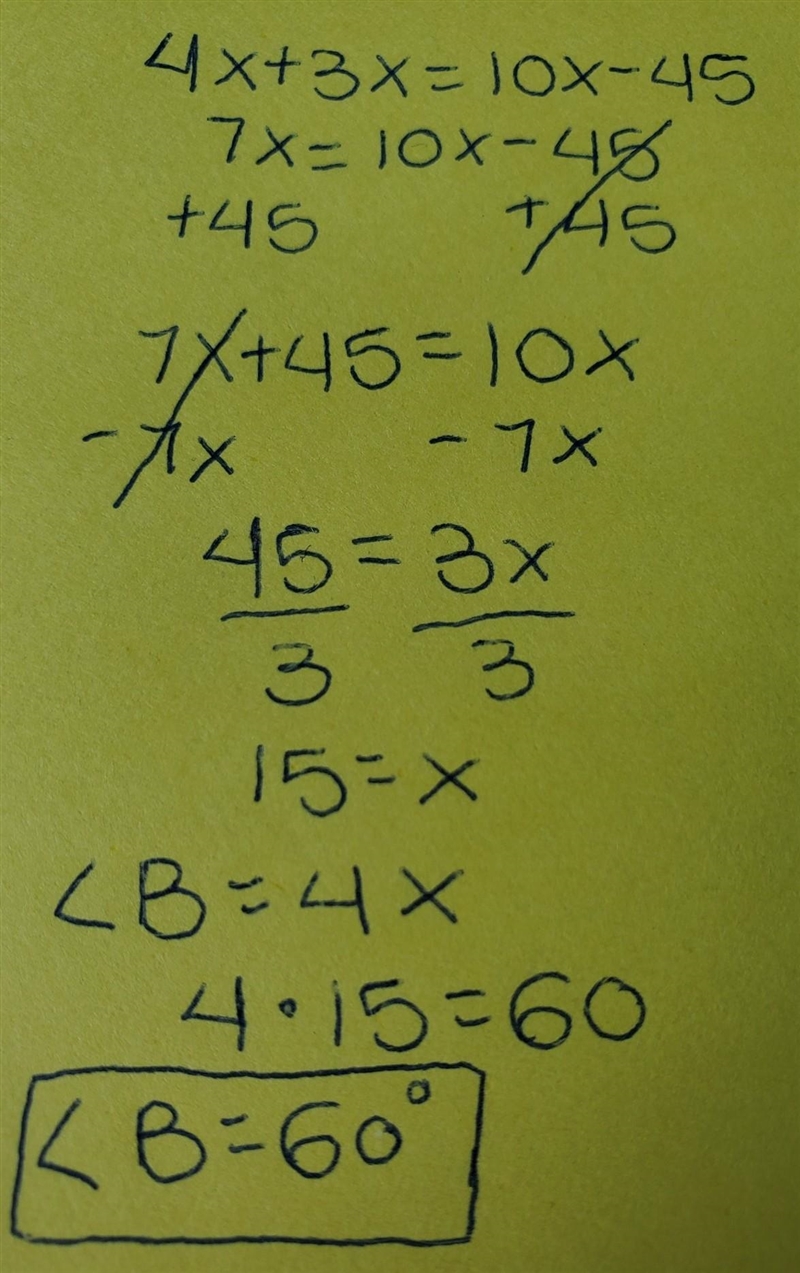 4x+3x=10x-45
7x=10x-45
+45 +45
7x+45=10x
-7x -7x
45=3x
3 3
15=x
<B=4x
4·15=60
<B=60°